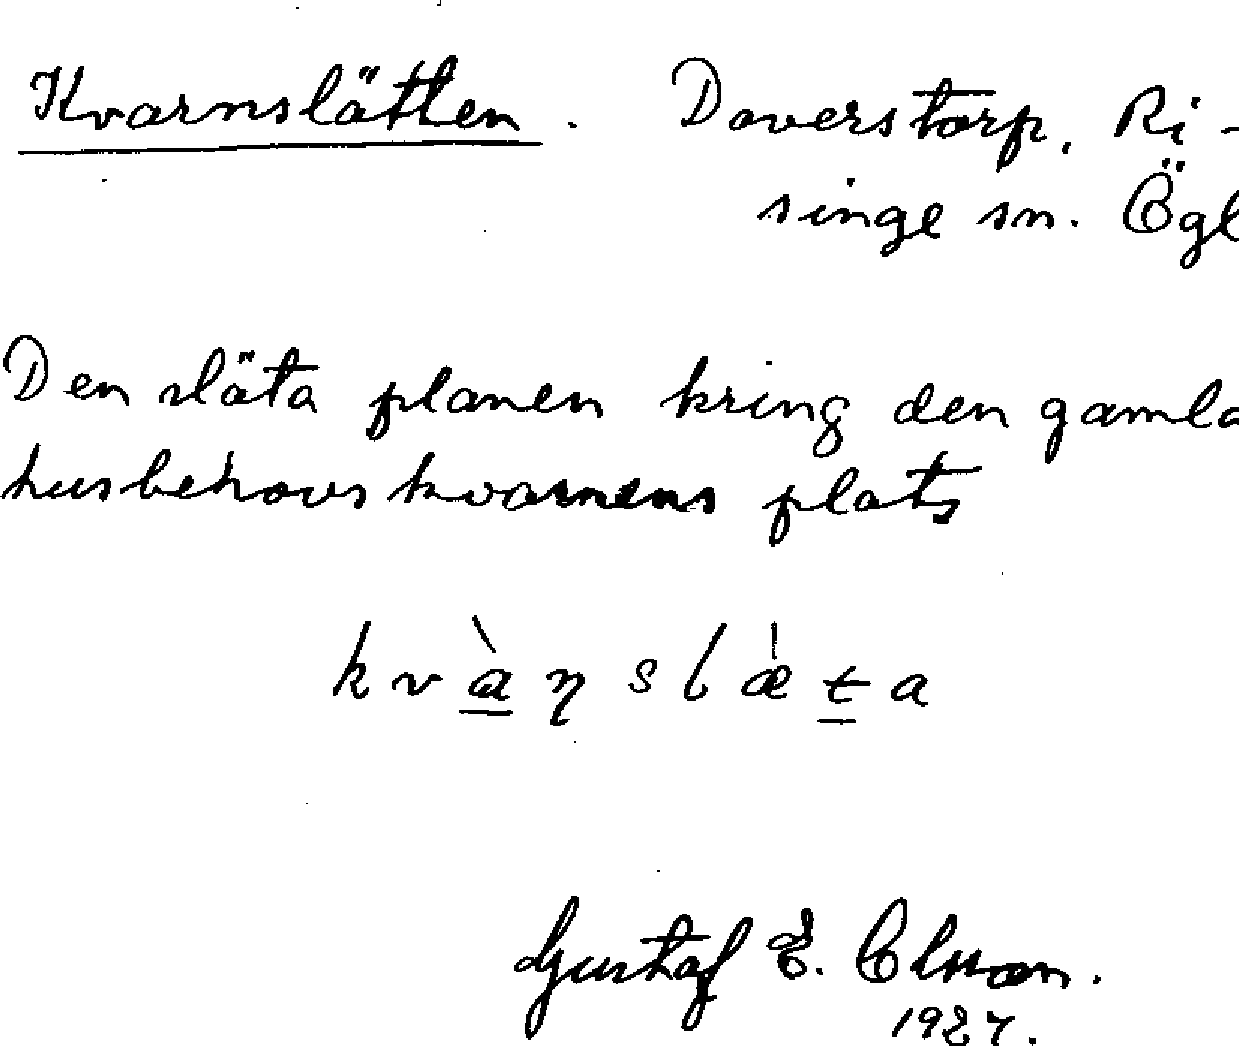 Kvarnslätten. Daverstorp, Ri-
singe sn. Ögl
Den släta planen kring den gamla
husbehovskvarnens plats
kvàꞃslǽta
Gustaf E. Olsson.
1927.